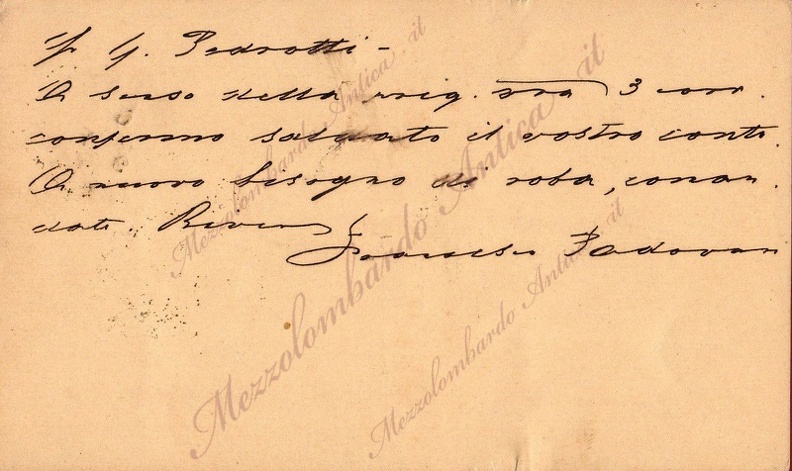 G. Pedrotti -
A senso della preg. vra 3 corr.
confermo saldato il vostro conto.
A nuovo bisogno di roba, coman-
date. River
Francesco Padovan
Mezzolombardo Antica.it
Mezzolombardo Antica.it
Mezzolombardo Antica.it